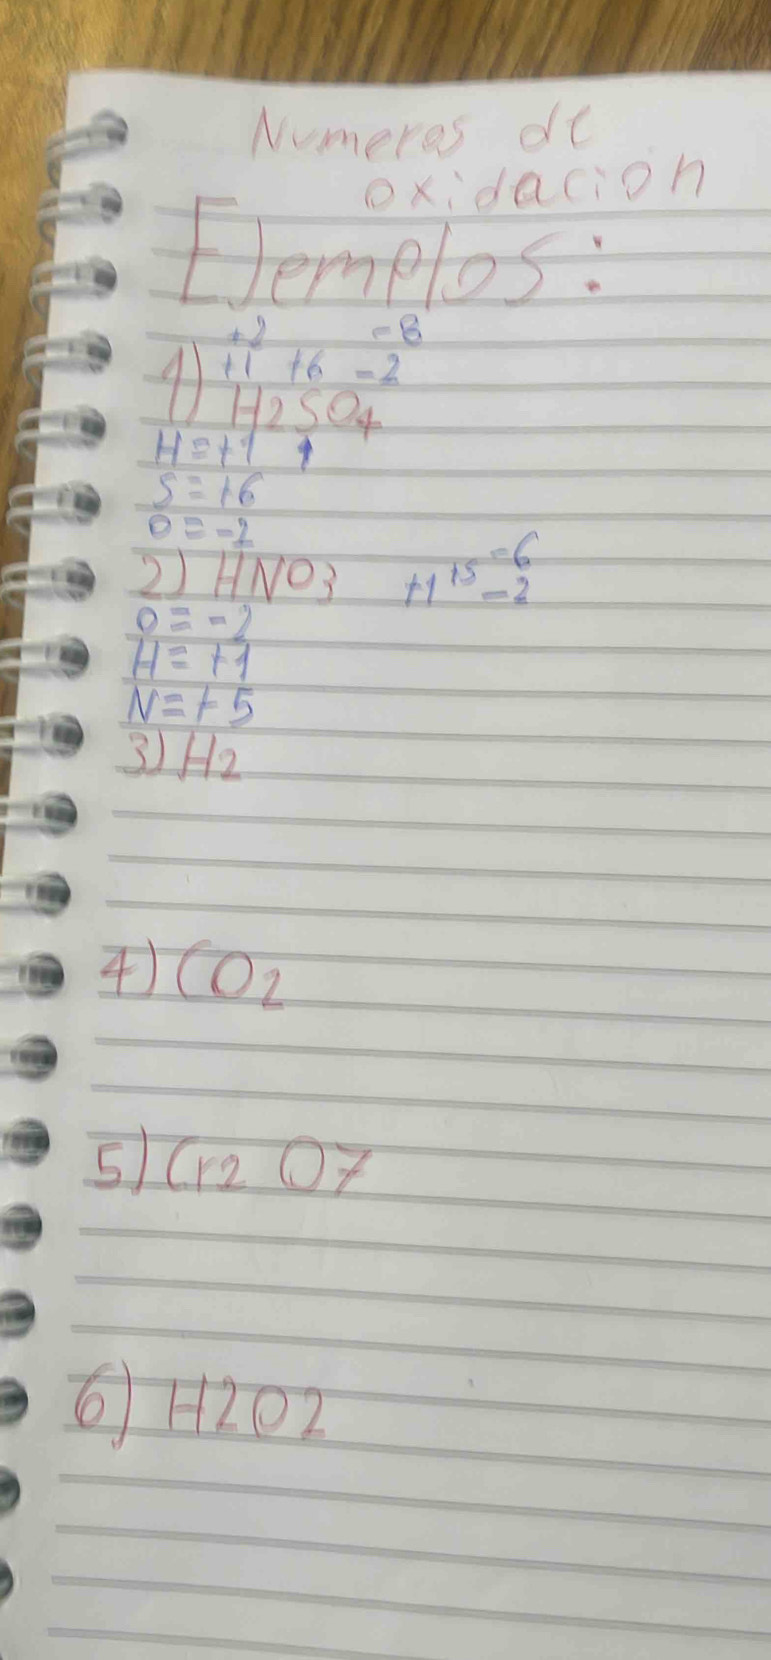 Numeros de
oxidación
Ejemplos:
+2 -8
1) +1 +6 -2
H2SO4
H=+1
S=+6
O=-2
-6
2) HNO3 +1 +5 -2
O=-2
H=+1
N=+5
3) H2
4) CO2
5) Cr2 O7
6) H2O2